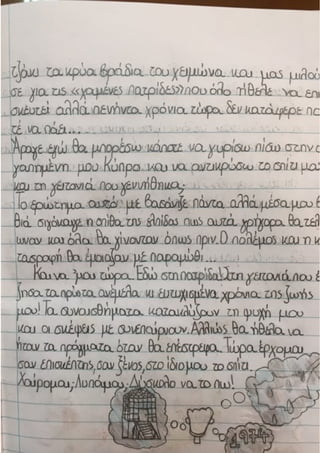 τζάκι τα κρύα βράδια του χειμώνα και μας μιλού
σε για τις «χαμένες πατρίδες» που όλο ήθελε να επι
σκευτεί αλλά πενήντα χρόνια τώρα δεν κατάφερε πο
τέ να πάει...
Άραγε εγώ θα μπορέσω κάποτε να γυρίσω πίσω στην α
γαπημένη μου Κύπρο και να αντικρύσω το σπίτι μας
και τη γειτονιά που γεννήθηκα;
Το ερώτημα αυτό με βασάνιζε πάντα αλλά μέσα μου β
θιά σιγόκαιγε η σπίθα της ελπίδας πως αυτά γρήγορα θα τελ
ιωναν και όλα θα γίνονταν όπως πριν. Ο πόλεμος και η κ
ταστραφή θα έμοιαζαν με παραμύθι...
Και να 'μαι τώρα. Εδώ στη πατρίδα! Στη γειτονιά που έ
ζησα τα πρώτα ανέμελα κι ευτυχισμένα χρόνια της ζωής
μου! Τα συναισθήματα κατακλύζουν τη ψυχή μου
και οι σκέψεις με συνεπαίρνουν. Αλλιώς θα ήθελα να
ήταν τα πράγματα όταν θα επέστρεφα. Τώρα έρχομαι
σαν επισκέπτης, σαν ξένος, στο ίδιο μου το σπίτι.
Χαίρομαι; Λυπάμαι; Δύσκολο να το πω!
1974